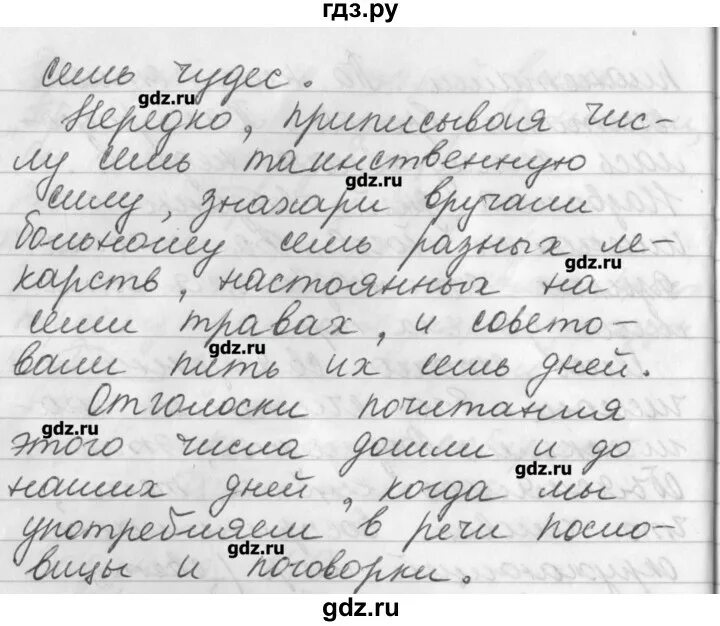 гдз.ру
семь чудес.
gdz.ru
Нередко, приписывая чис-
лу семь таинственную
gdz.ru
силу, знахари вручали
больному семь разных ле-
gdz.ru
карств, настоянных на
семи травах, и совето-
gdz.ru
вали пить их семь дней.
Отголоски почитания
gdz.ru
этого числа дошли и до
gdz.ru
наших дней, когда мы
употребляем в речи посло-
gdz.ru
вицы и поговорки.
gdz.ru